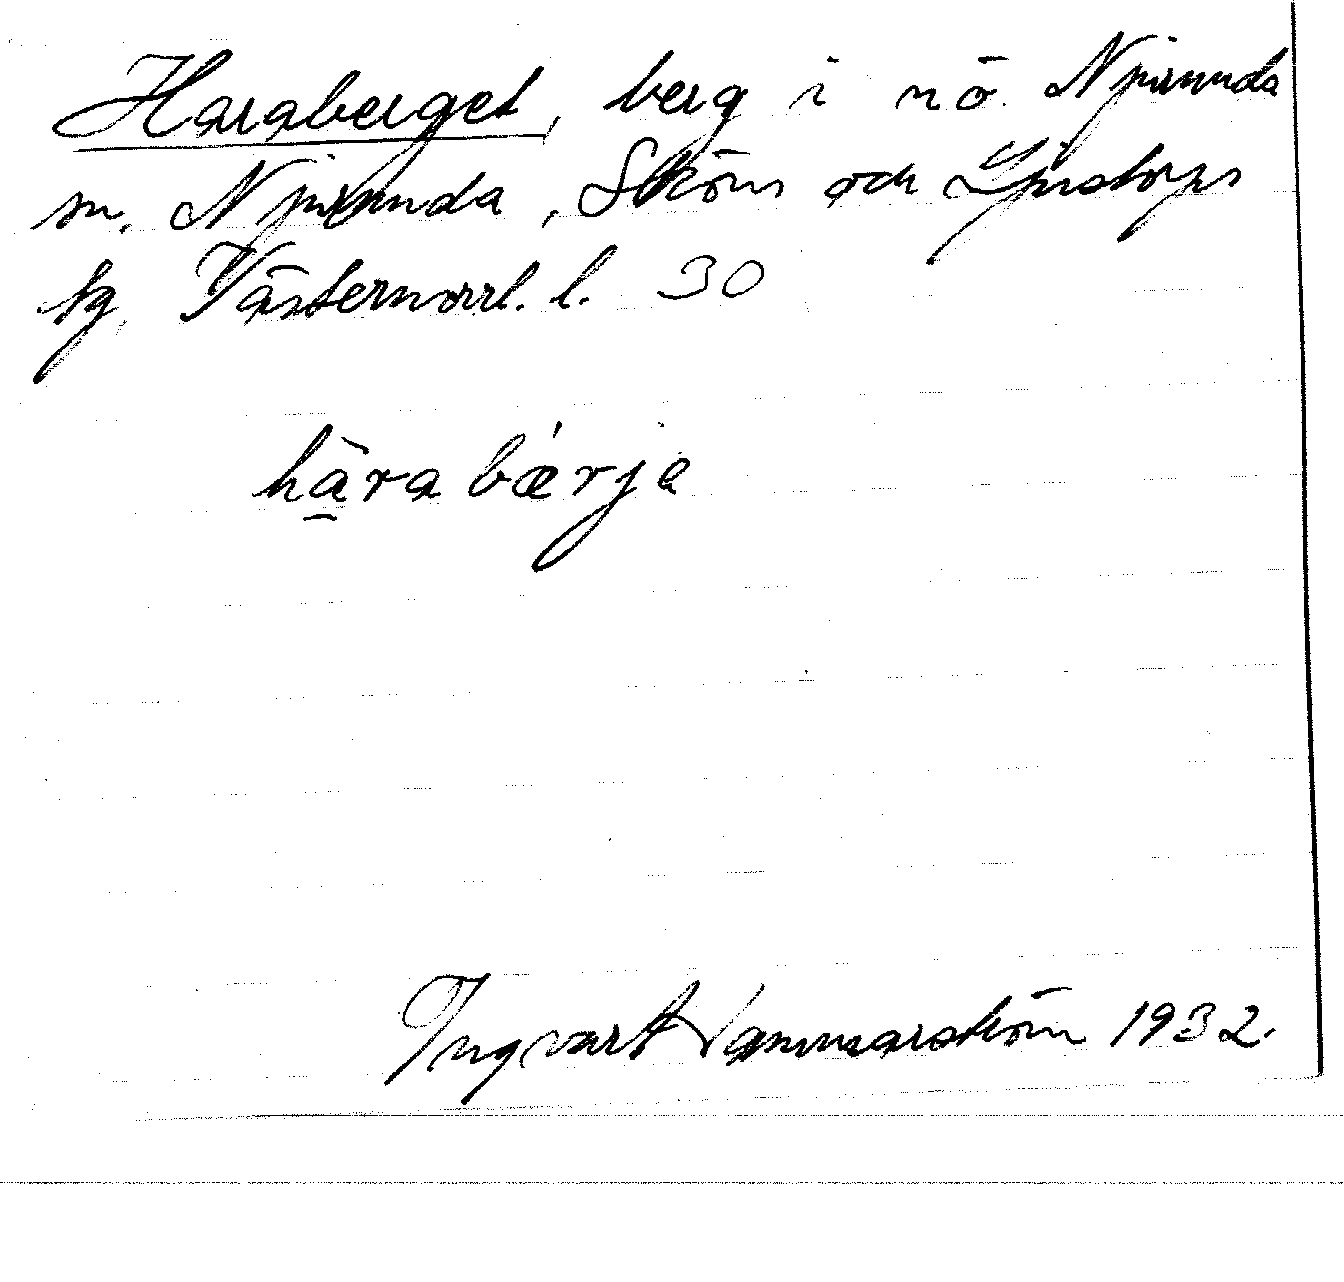 Haraberget, berg i nö. Njurunda
sn. Njurunda, Sköns och Ljustorps
tg, Västernorrl. l. 30
hāra bǽrje
Ingvart Hammarström 1932.